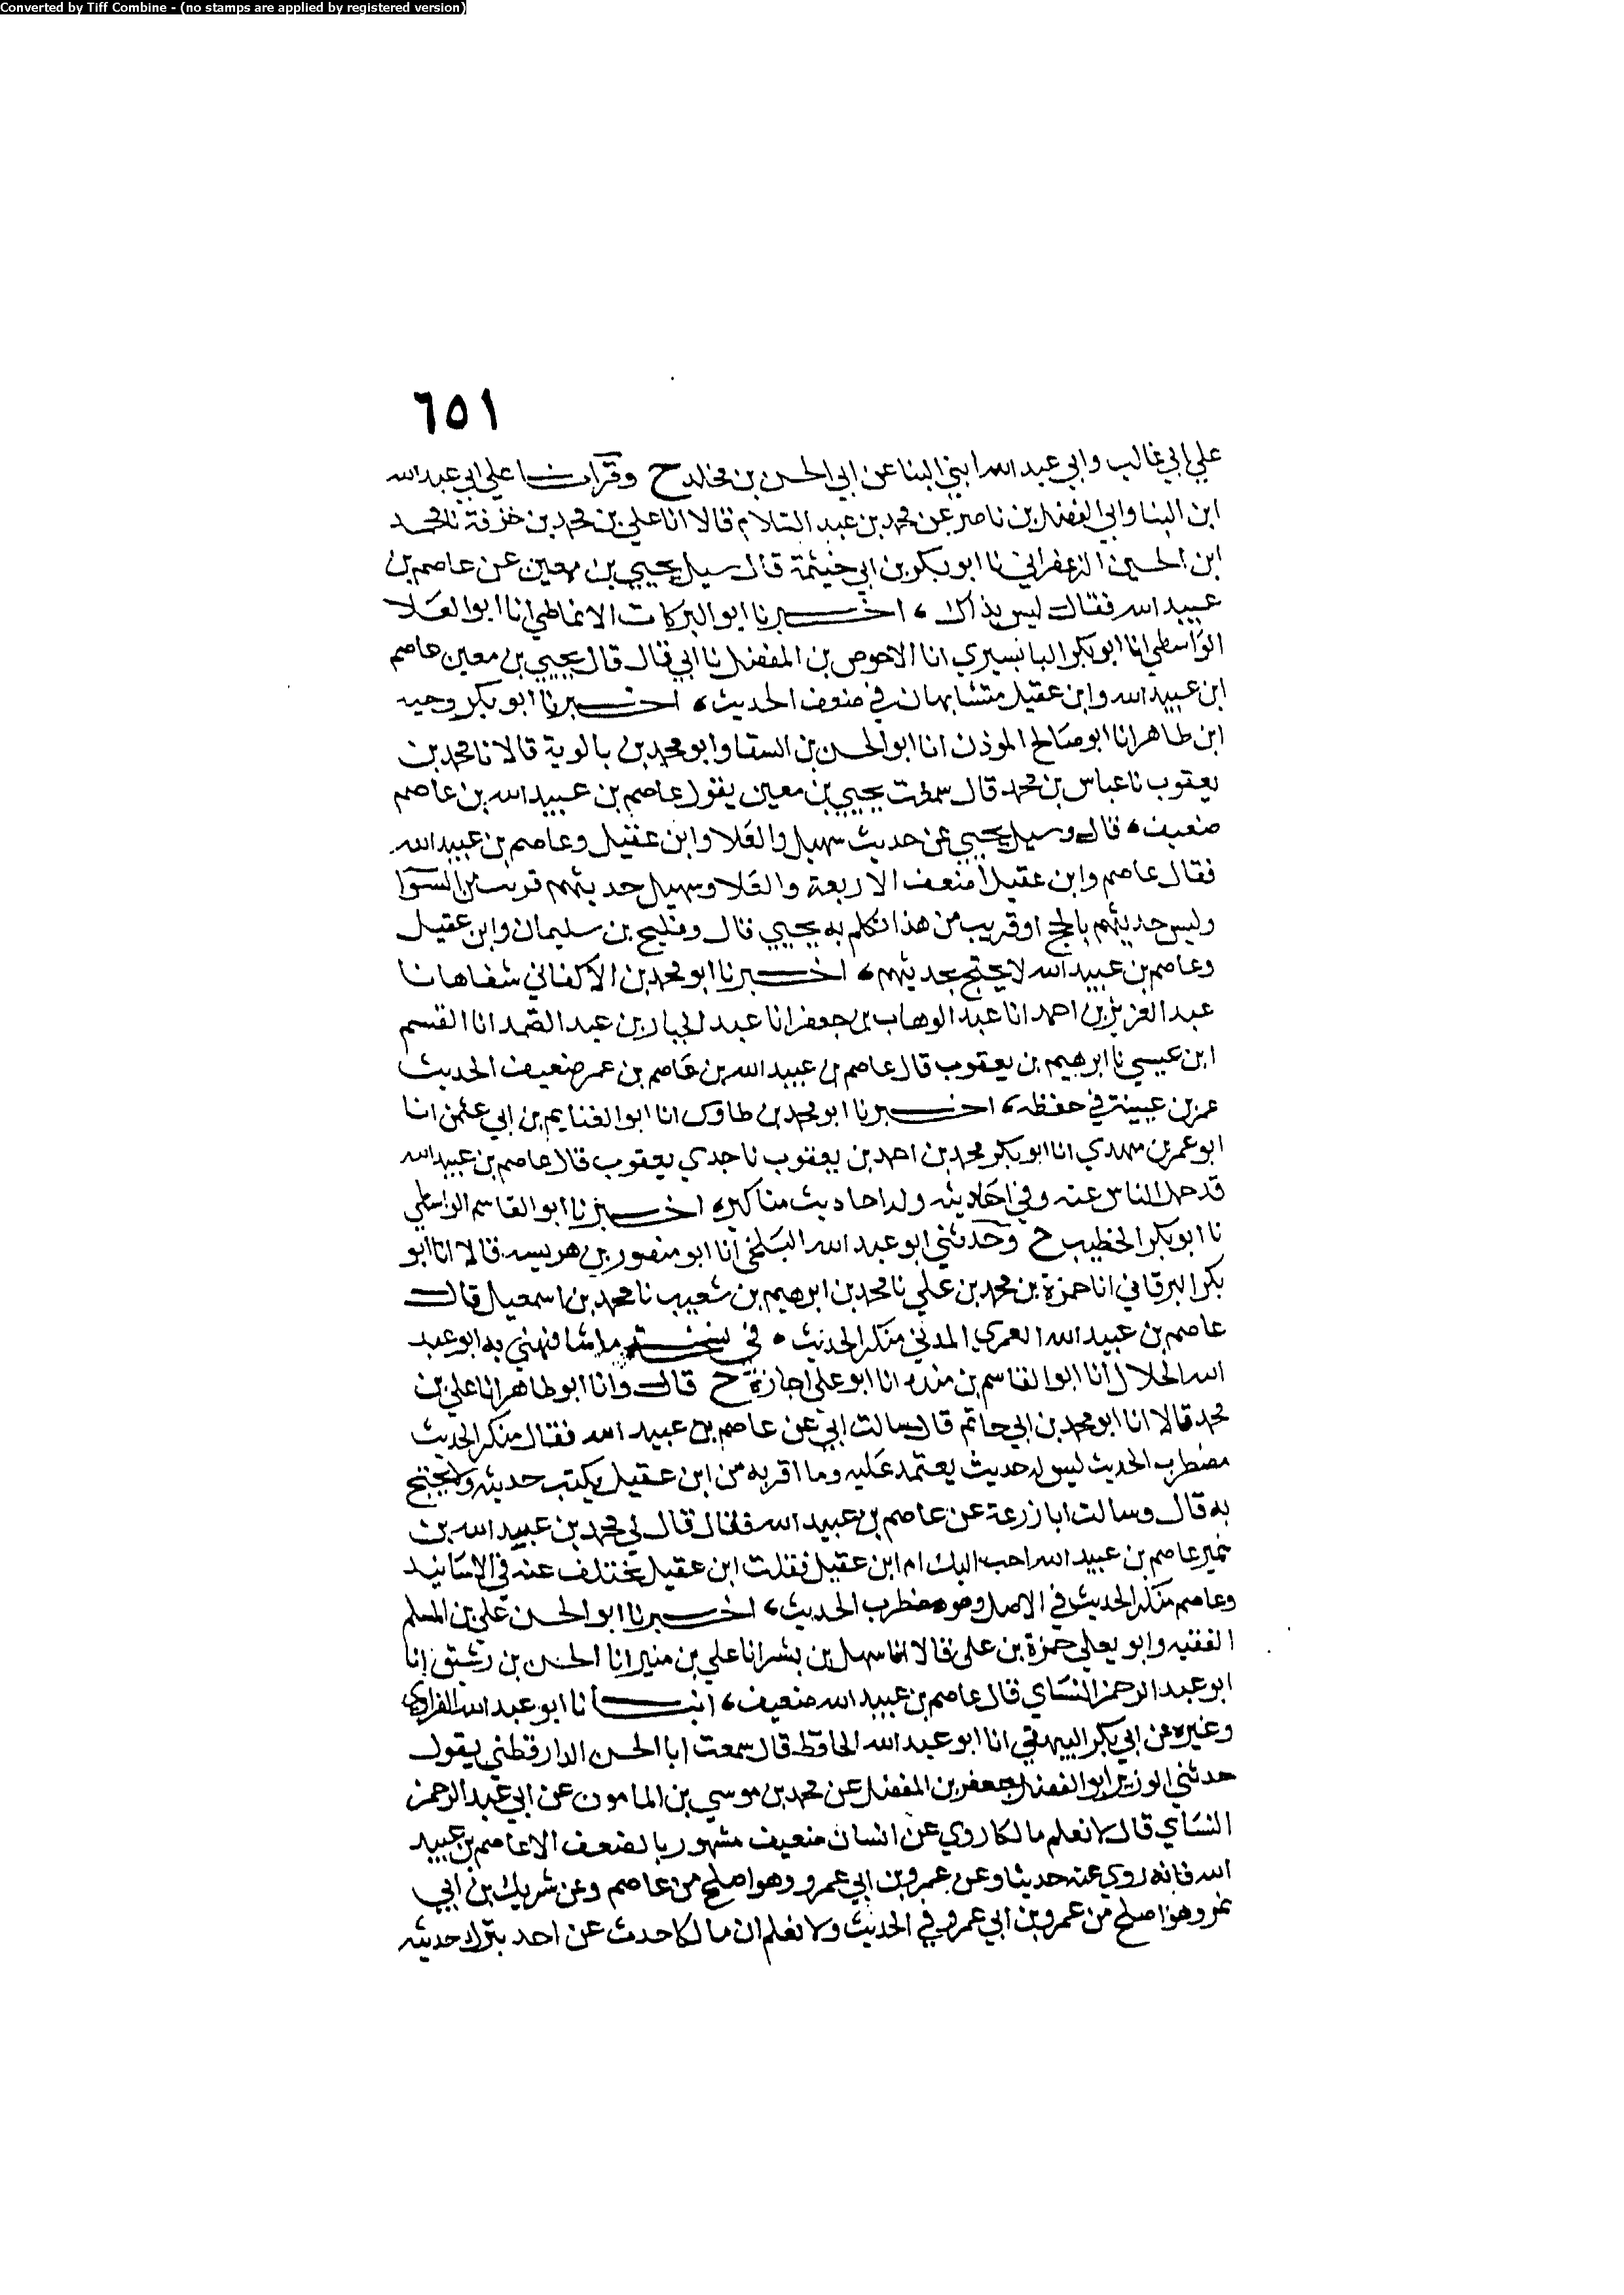 Converted by Tiff Combine - (no stamps are applied by registered version)
٦٥١
علي ابي غالب وابي عبد الله ابني البنا عن ابي الحسن بن مخلد ح وقرات على ابي عبد الله
ابن البنا وابي الفضل بن ناصر عن محمد بن عبد السلام قالا انا علي بن محمد بن خزفة نا محمد
ابن الحسين الزعفراني نا ابو بكر بن ابي خيثمة قال سيل يحيي بن معين عن عاصم بن
عبيد الله فقال ليس بذاك، اخبرنا ابو البركات الانماطي انا ابو العلا
الواسطي انا ابو بكر البابسيري انا الاحوص بن المفضل نا ابي قال قال يحيي بن معين عاصم
ابن عبيد الله وابن عقيل متشابهان في ضعف الحديث، اخبرنا ابو بكر وجيه
ابن طاهر انا ابو صالح الموذن انا ابو الحسن بن السقا وابو محمد بن بالوية قالا نا محمد بن
يعقوب نا عباس بن محمد قال سمعت يحيي بن معين يقول عاصم بن عبيد الله بن عاصم
ضعيف، قال وسيل يحيي عن حديث سهيل والعلا وابن عقيل وعاصم بن عبيد الله
فقال عاصم وابن عقيل اضعف الاربعة والعلا وسهيل حديثهم قريب من السوا
وليس حديثهم بالحجج او قريب من هذا تكلم به يحيي قال وفليح بن سليمان وابن عقيل
وعاصم بن عبيد الله لا يحتج بحديثهم، اخبرنا ابو محمد بن الاكفاني شفاها نا
عبد العزيز بن احمد انا عبد الوهاب بن جعفر انا عبد الجبار بن عبد الصمد انا القسم
ابن عيسي نا ابرهيم بن يعقوب قال عاصم بن عبيد الله بن عاصم بن عمر ضعيف الحديث
غمز بن عيينة في حفظه، اخبرنا ابو محمد بن طاوس انا ابو الغنايم بن ابي عثمن انا
ابو عمر بن مهدي انا ابو بكر محمد بن احمد بن يعقوب نا جدي يعقوب قال عاصم بن عبيد الله
قد حمل الناس عنه وفي احاديثه وله احاديث مناكير، اخبرنا ابو القاسم الواسطي
نا ابو بكر الخطيب ح وحدثني ابو عبد الله البلخي انا ابو منصور بن هريسه قالا انا ابو
بكر البرقاني انا حمزة بن محمد بن علي نا محمد بن ابرهيم بن شعيب نا محمد بن اسمعيل قال
عاصم بن عبيد الله العمري المدني منكر الحديث، في نسخة ما شافهني به ابو عبد
الله الخلال انا ابو القاسم بن منده انا ابو علي اجازة ح قال وانا ابو طاهر انا علي بن
محمد قالا انا ابو محمد بن ابي حاتم قال سالت ابي عن عاصم بن عبيد الله فقال منكر الحديث
مضطرب الحديث ليس له حديث يعتمد عليه وما اقربه من ابن عقيل يكتب حديثه ولا يحتج
به قال وسالت ابا زرعة عن عاصم بن عبيد الله فقال قال لي محمد بن عبيد الله بن
نمير عاصم بن عبيد الله احب اليك ام ابن عقيل فقلت ابن عقيل يختلف عنه في الاسانيد
وعاصم منكر الحديث في الاصل وهو مضطرب الحديث، اخبرنا ابو الحسن علي بن المسلم
الفقيه وابو يعلي حمزة بن علي قالا انا سهل بن بشر انا علي بن منير انا الحسن بن رشيق انا
ابو عبد الرحمن النساي قال عاصم بن عبيد الله ضعيف، انبانا ابو عبد الله الفراوي
وغيره عن ابي بكر البيهقي انا ابو عبد الله الحافظ قال سمعت ابا الحسن الدارقطني يقول
حدثني الوزير ابو الفضل جعفر بن المفضل عن محمد بن موسي بن المامون عن ابي عبد الرحمن
النساي قال لا نعلم مالكا روي عن انسان ضعيف مشهور بالضعف الا عاصم بن عبيد
الله فانه روي عنه حديثا وعن عمرو بن ابي عمرو وهو اصلح من عاصم وعن شريك بن ابي
نمر وهو اصلح من عمرو بن ابي عمرو في الحديث ولا نعلم ان مالكا حدث عن احد يترك حديثه